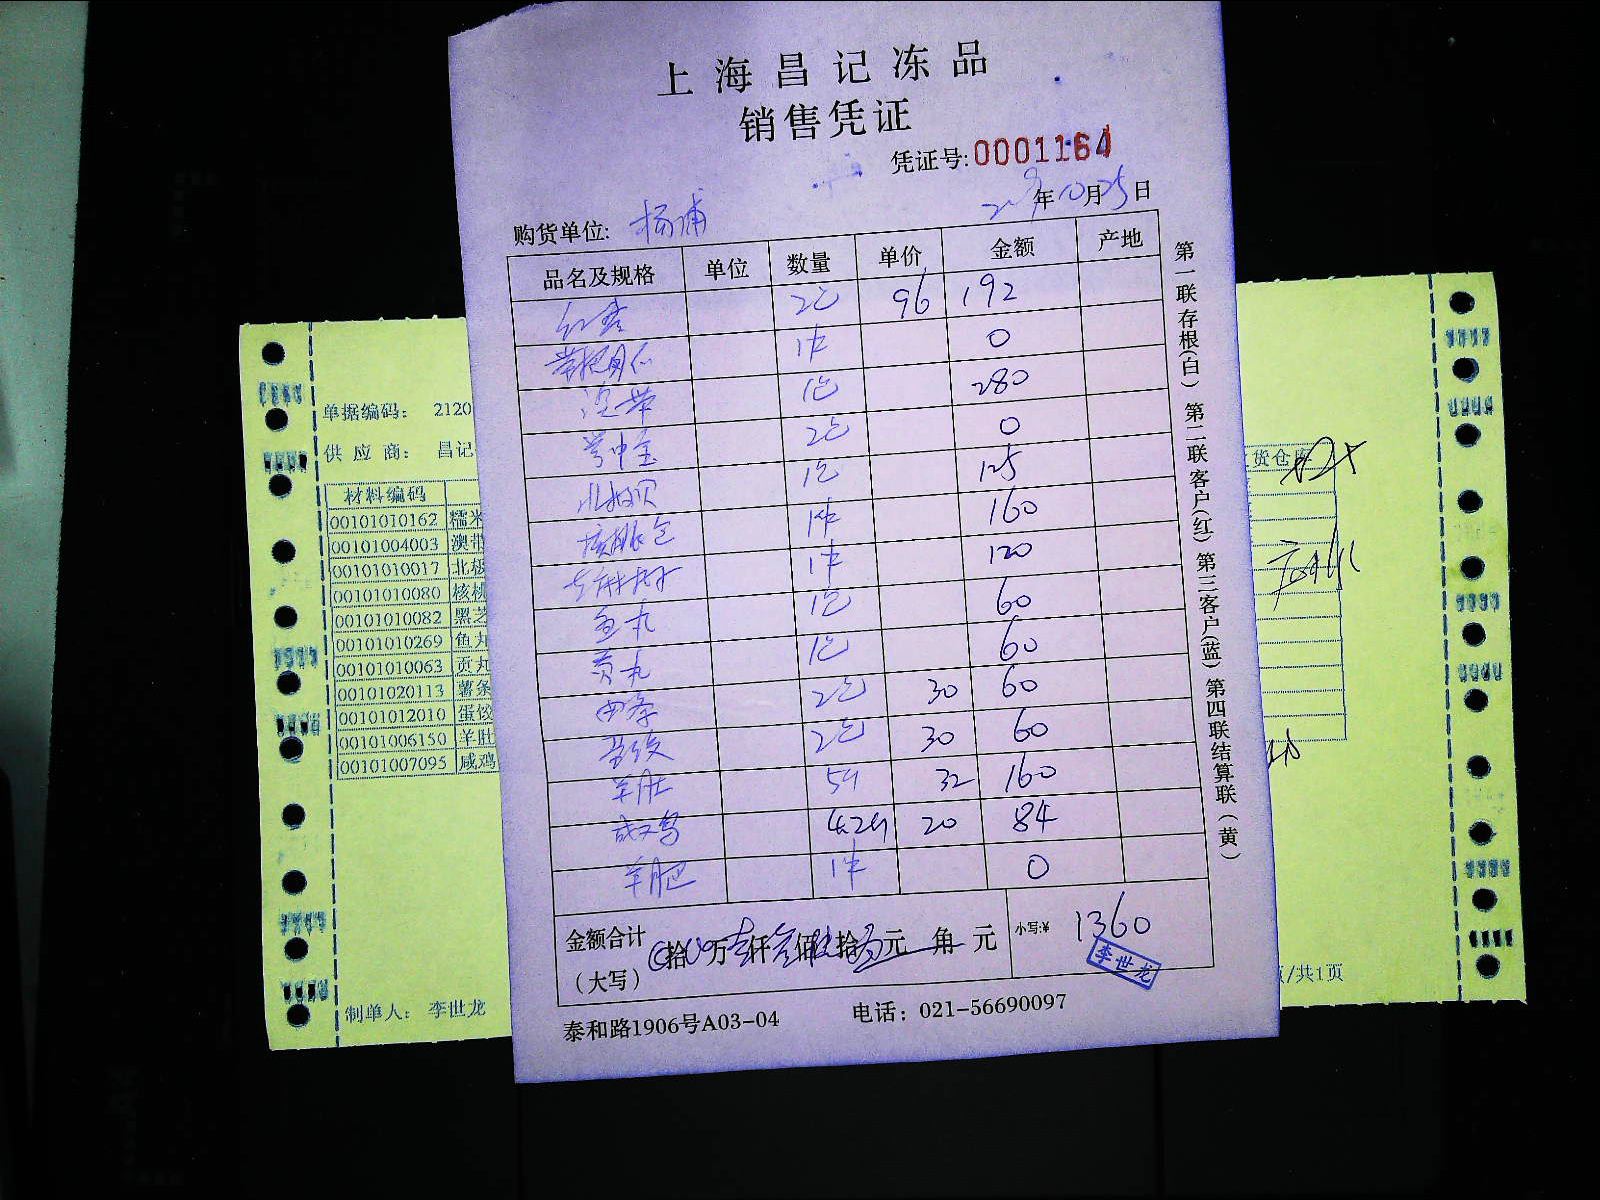 上海昌记冻品
销售凭证
凭证号: 0001164
年10月25日
购货单位: 杨浦
品名及规格 单位 数量 单价 金额 产地
红枣 2包 96 192
带把月仁 1件 0
澳带 1包 280
2包 0
北极贝 1包 125
核桃包 1件 160
1件 120
鱼丸 1包 60
贡丸 1包 60
2包 30 60
蛋饺 2包 30 60
羊肚 5斤 32 160
咸鸡 4.2斤 20 84
羊肥 1件 0
金额合计
(大写) 拾 万 仟 佰 拾 元 角 元 小写:¥ 1360
李世龙
泰和路1906号A03-04 电话: 021-56690097
第一联存根(白) 第二联客户(红) 第三客户(蓝) 第四联结算联(黄)
单据编码: 2120
供应商: 昌记
材料编码
00101010162 糯米
00101004003 澳带
00101010017 北极
00101010080 核桃
00101010082 黑芝
00101010269 鱼丸
00101010063 贡丸
00101020113 薯条
00101012010 蛋饺
00101006150 羊肚
00101007095 咸鸡
制单人: 李世龙
货仓库
/共1页